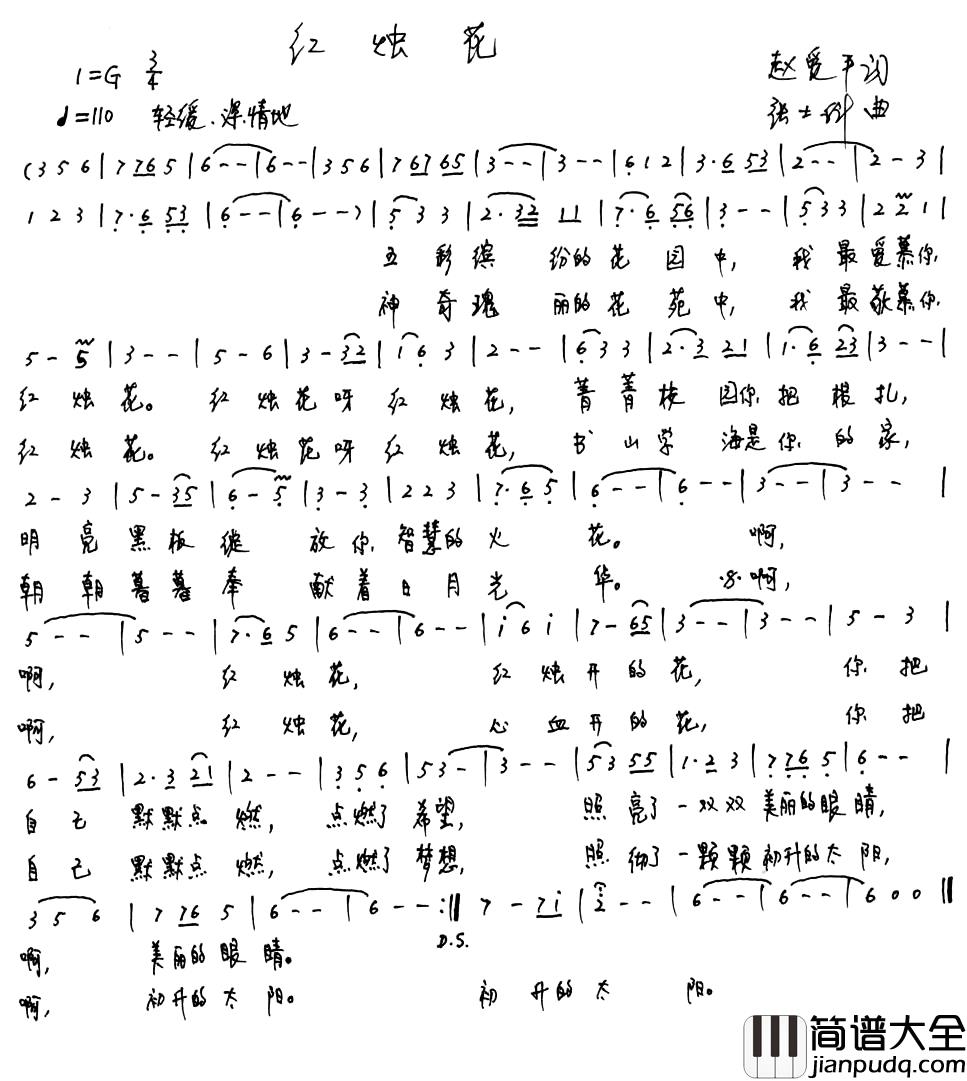 红烛花
1=G 3/4
赵爱平词
♩=110 轻缓、深情地
张士 曲
(3 5 6 | 7 76 5 | 6 - - | 6 - - | 3 5 6 | 7 67 65 | 3 - - | 3 - - | 6 1 2 | 3· 6 53 | 2 - - | 2 - 3 |
1 2 3 | 7· 6 53 | 6 - - | 6 - -) | 5 3 3 | 2· 32 11 | 7· 6 56 | 3 - - | 5 3 3 | 2 2 1 |
五彩缤纷的花园中, 我最爱慕你,
神奇瑰丽的花苑中, 我最敬慕你,
5 - 5 | 3 - - | 5 - 6 | 3 - 32 | i 6 3 | 2 - - | 6 3 3 | 2· 3 21 | 1· 6 23 | 3 - - |
红烛花。 红烛花呀红烛花, 菁菁校园你把根扎,
红烛花。 红烛花呀红烛花, 书山学海是你的家,
2 - 3 | 5 - 35 | 6 - 5 | 3 - 3 | 2 2 3 | 7· 6 5 | 6 - - | 6 - - | 3 - - | 3 - - |
明亮黑板绽放你智慧的火花。 啊,
朝朝暮暮奉献着日月光华。 啊,
5 - - | 5 - - | 7· 6 5 | 6 - - | 6 - - | i 6 i | 7 - 65 | 3 - - | 3 - - | 5 - 3 |
啊, 红烛花, 红烛开的花, 你把
啊, 红烛花, 心血开的花, 你把
6 - 53 | 2· 3 21 | 2 - - | 3 5 6 | 53 - | 3 - - | 5 3 55 | 1· 2 3 | 7 76 5 | 6 - - |
自己默默点燃, 点燃了希望, 照亮了一双双美丽的眼睛,
自己默默点燃, 点燃了梦想, 照彻了一颗颗初升的太阳,
3 5 6 | 7 76 5 | 6 - - | 6 - - :‖ 7 - 7i | 2 - - | 6 - - | 6 - - | 6 0 0 ‖
D.S.
啊, 美丽的眼睛。
啊, 初升的太阳。 初升的太阳。
简谱大全
jianpudq.com